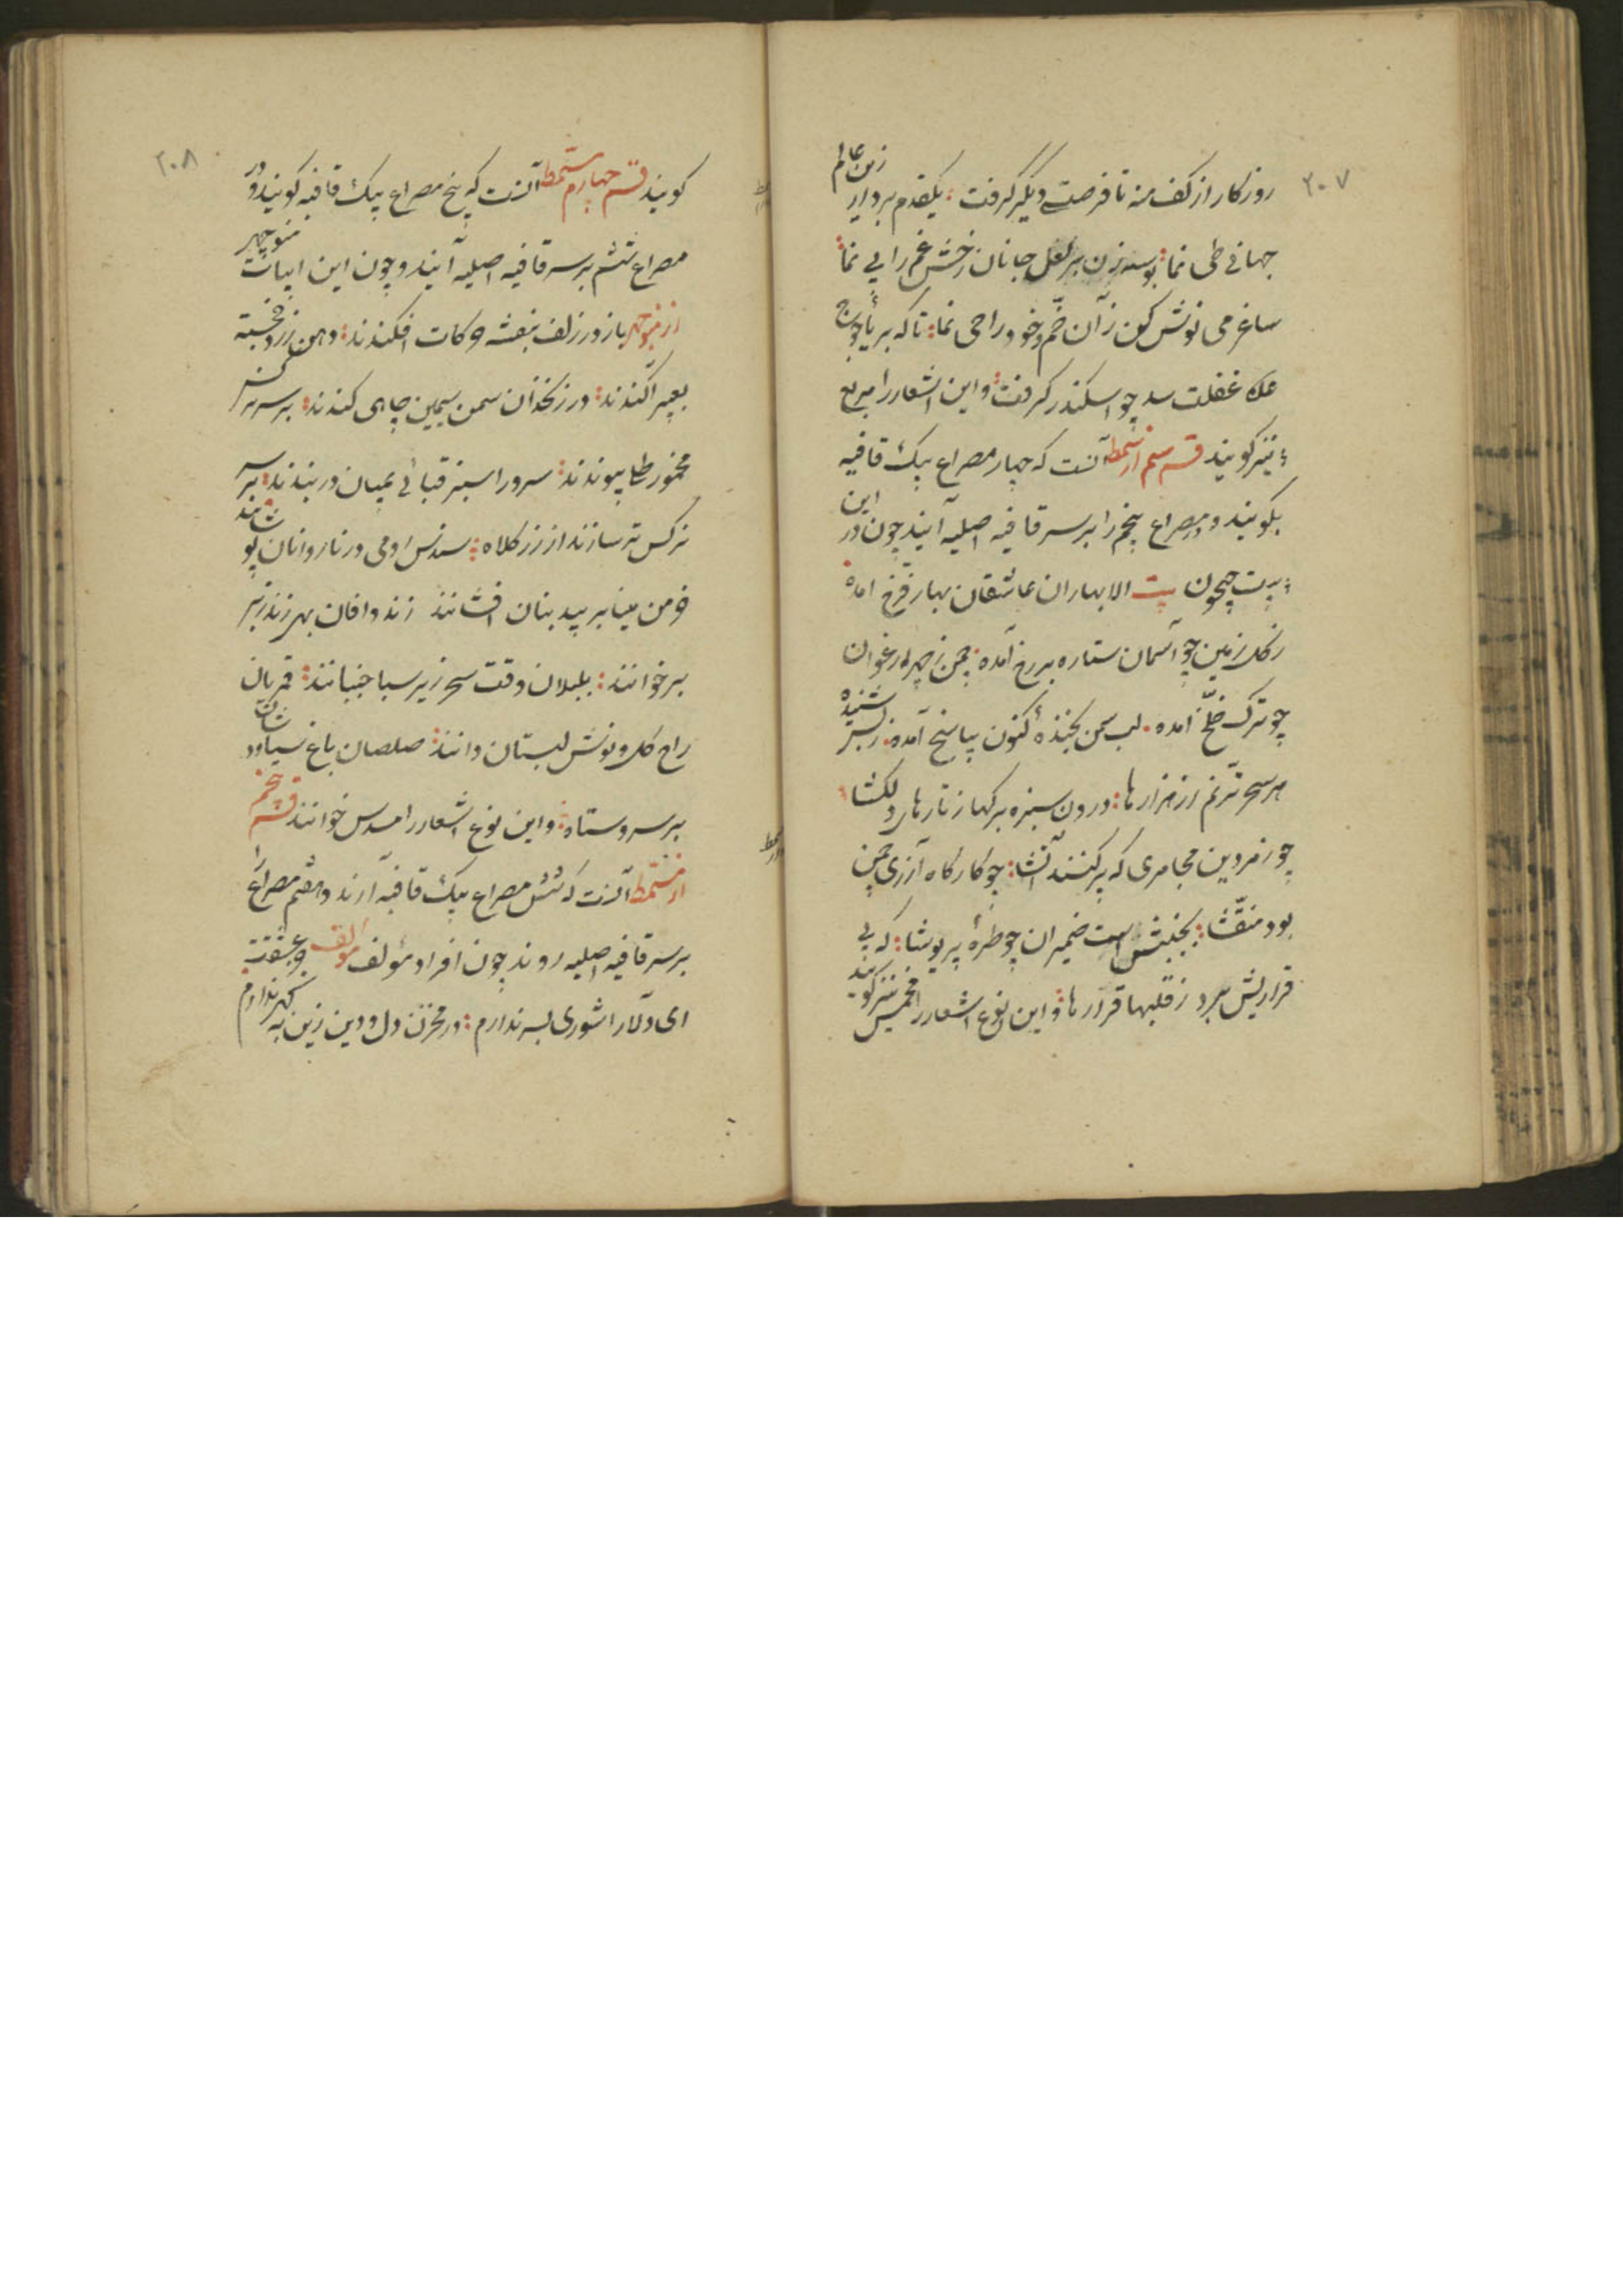 ۲۰۷
روزکار از کف منه تا فرصتے دیگر گرفت : یکقدم بردار زین عالم
جهانی طی نما : بوسه زن بر لعل جانان رخش غم را پی نما :
ساغر می نوش کن زآن خم و خود را حی نما : تا که بر یأجوج
غفلت سد چو اسکندر گرفت : و این اشعار را مربع
نیز گویند قسم سیم از مسمط آنست که چهار مصراع بیک قافیه
بگویند و مصراع پنجم را بر سر قافیه اصلیه آیند چون در این
بیت جیحون بیت الا بهاران عاشقان بهار فرخ آمده
ز گل زمین چو آسمان ستاره بر رخ آمده : چمن ز چهر ارغوان
چو ترک خلّخ آمده . لب سمن بخندهٔ کنون بپاسخ آمده .
هر سحر ترنم از هزارها : درون سبزه برگها ز تارهای دلکشا :
چو زمردین مجامری که پر کنند آتشا : چو کارگاه آزری چمن
بود منقّشا : بجنبش است ضمیران چو طرهٔ پریوشا : که بی
قراریش برد ز قلبها قرارها : و این نوع اشعار را مخمس نیز گویند
۲۰۸
گویند قسم چهارم مسمط آنست که پنج مصراع بیک قافیه گویند و در
مصراع ششم بر سر قافیه اصلیه آیند و چون این ابیات منوچهر
از منوچهر باز در زلف بنفشه حرکات افکندند : دهن زرد خجسته
بعبیر آکندند : در زنخدان سمن سیمین چاهی کندند : بر سر نرگس
مخمور طلا پیوندند : سرو را سبز قبائی بمیان در بندند : بر سر
نرکس تر سازند از زر کلاه : سندس رومی در نارونان پوشانند
خرمن مینا بر بید بنان افشانند زند وافان بهی زند زبر
بر خوانند : بلبلان وقت سحر زیر سبا جنبانند : قمریان
راه گل و نوش لبینان دانند : صلصلان باغ سیاووشان
بر سرو ستاه : و این نوع اشعار را مسدس خوانند قسم پنجم
از مسمط آنست که شش مصراع بیک قافیه آرند و هفتم مصراع
بر سر قافیه اصلیه روند چون افراد مؤلف مؤلف
ای دلآرا شوری بسر ندارم : در مخزن دل و دین زین به گهر ندارم